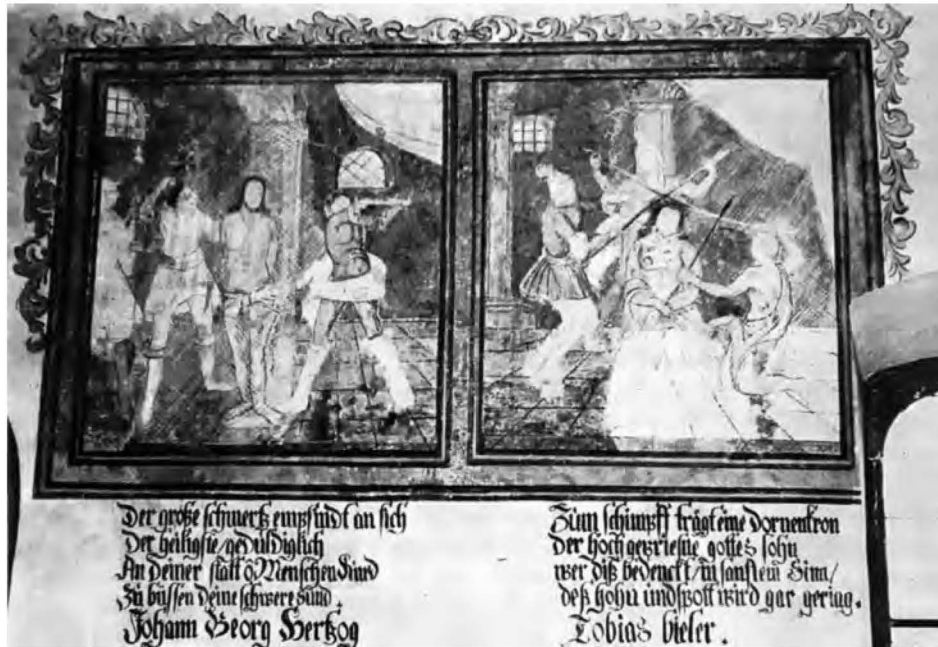 Der große schmertz empfindt an sich
Der heiligste/gedultiglich
An deiner statt ô Menschen Kind
Zu büssen deine schwere sünd.
Johann Georg Hertzog
Zum schimpff trägt eine dornenkron
Der hoch gepriesne gottes sohn
wer diß bedenckt/in sanftem Sinn/
deß hohn und spott wird gar gering.
Tobias bieler.